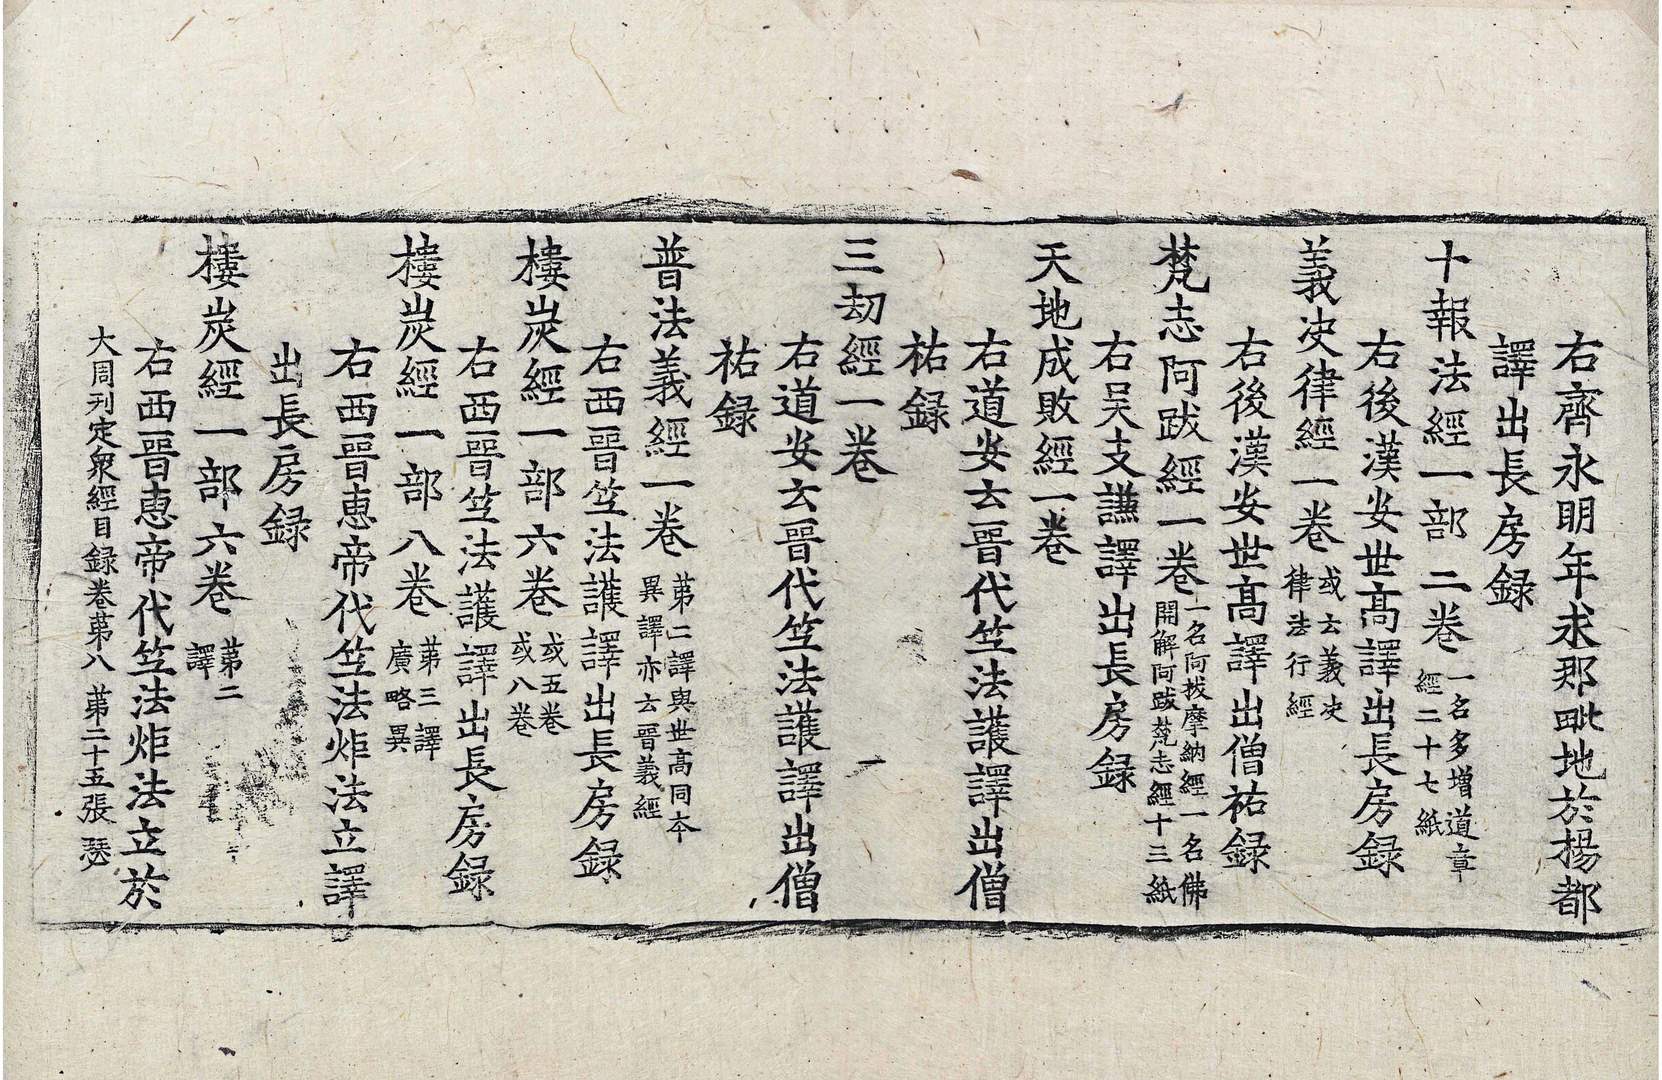 右齊永明年求那毗地於揚都
譯出長房録
十報法經一部二卷一名多增道章
經二十七紙
右後漢安世高譯出長房録
義决律經一卷或云義决
律法行經
右後漢安世高譯出僧祐録
梵志阿颰經一卷一名阿拔摩納經一名佛
開解阿颰梵志經十三紙
右吴支謙譯出長房録
天地成敗經一卷
右道安云晉代竺法護譯出僧
祐録
三劫經一卷
右道安云晉代竺法護譯出僧
祐録
普法義經一卷第二譯與世高同本
異譯亦云晉義經
右西晉竺法護譯出長房録
樓炭經一部六卷或五卷
或八卷
右西晉竺法護譯出長房録
樓炭經一部八卷第三譯
廣略異
右西晉惠帝代竺法炬法立譯
出長房録
樓炭經一部六卷第二
譯
右西晉惠帝代竺法炬法立於
大周刊定衆經目録卷第八 第二十五張 瑟